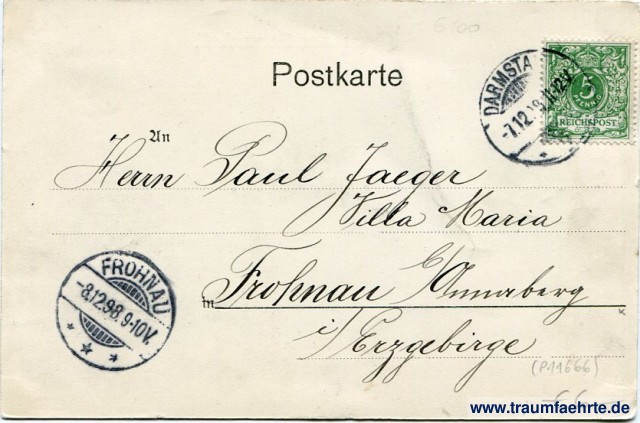 6100
Postkarte
DARMSTA
-7.12.98.
5
PFENNIG
REICHSPOST
An
Herrn Paul Jaeger
Villa Maria
in Frohnau b/Annaberg
i/Erzgebirge
FROHNAU
-8.12.98.9-10V.
(P11666)
www.traumfaehrte.de